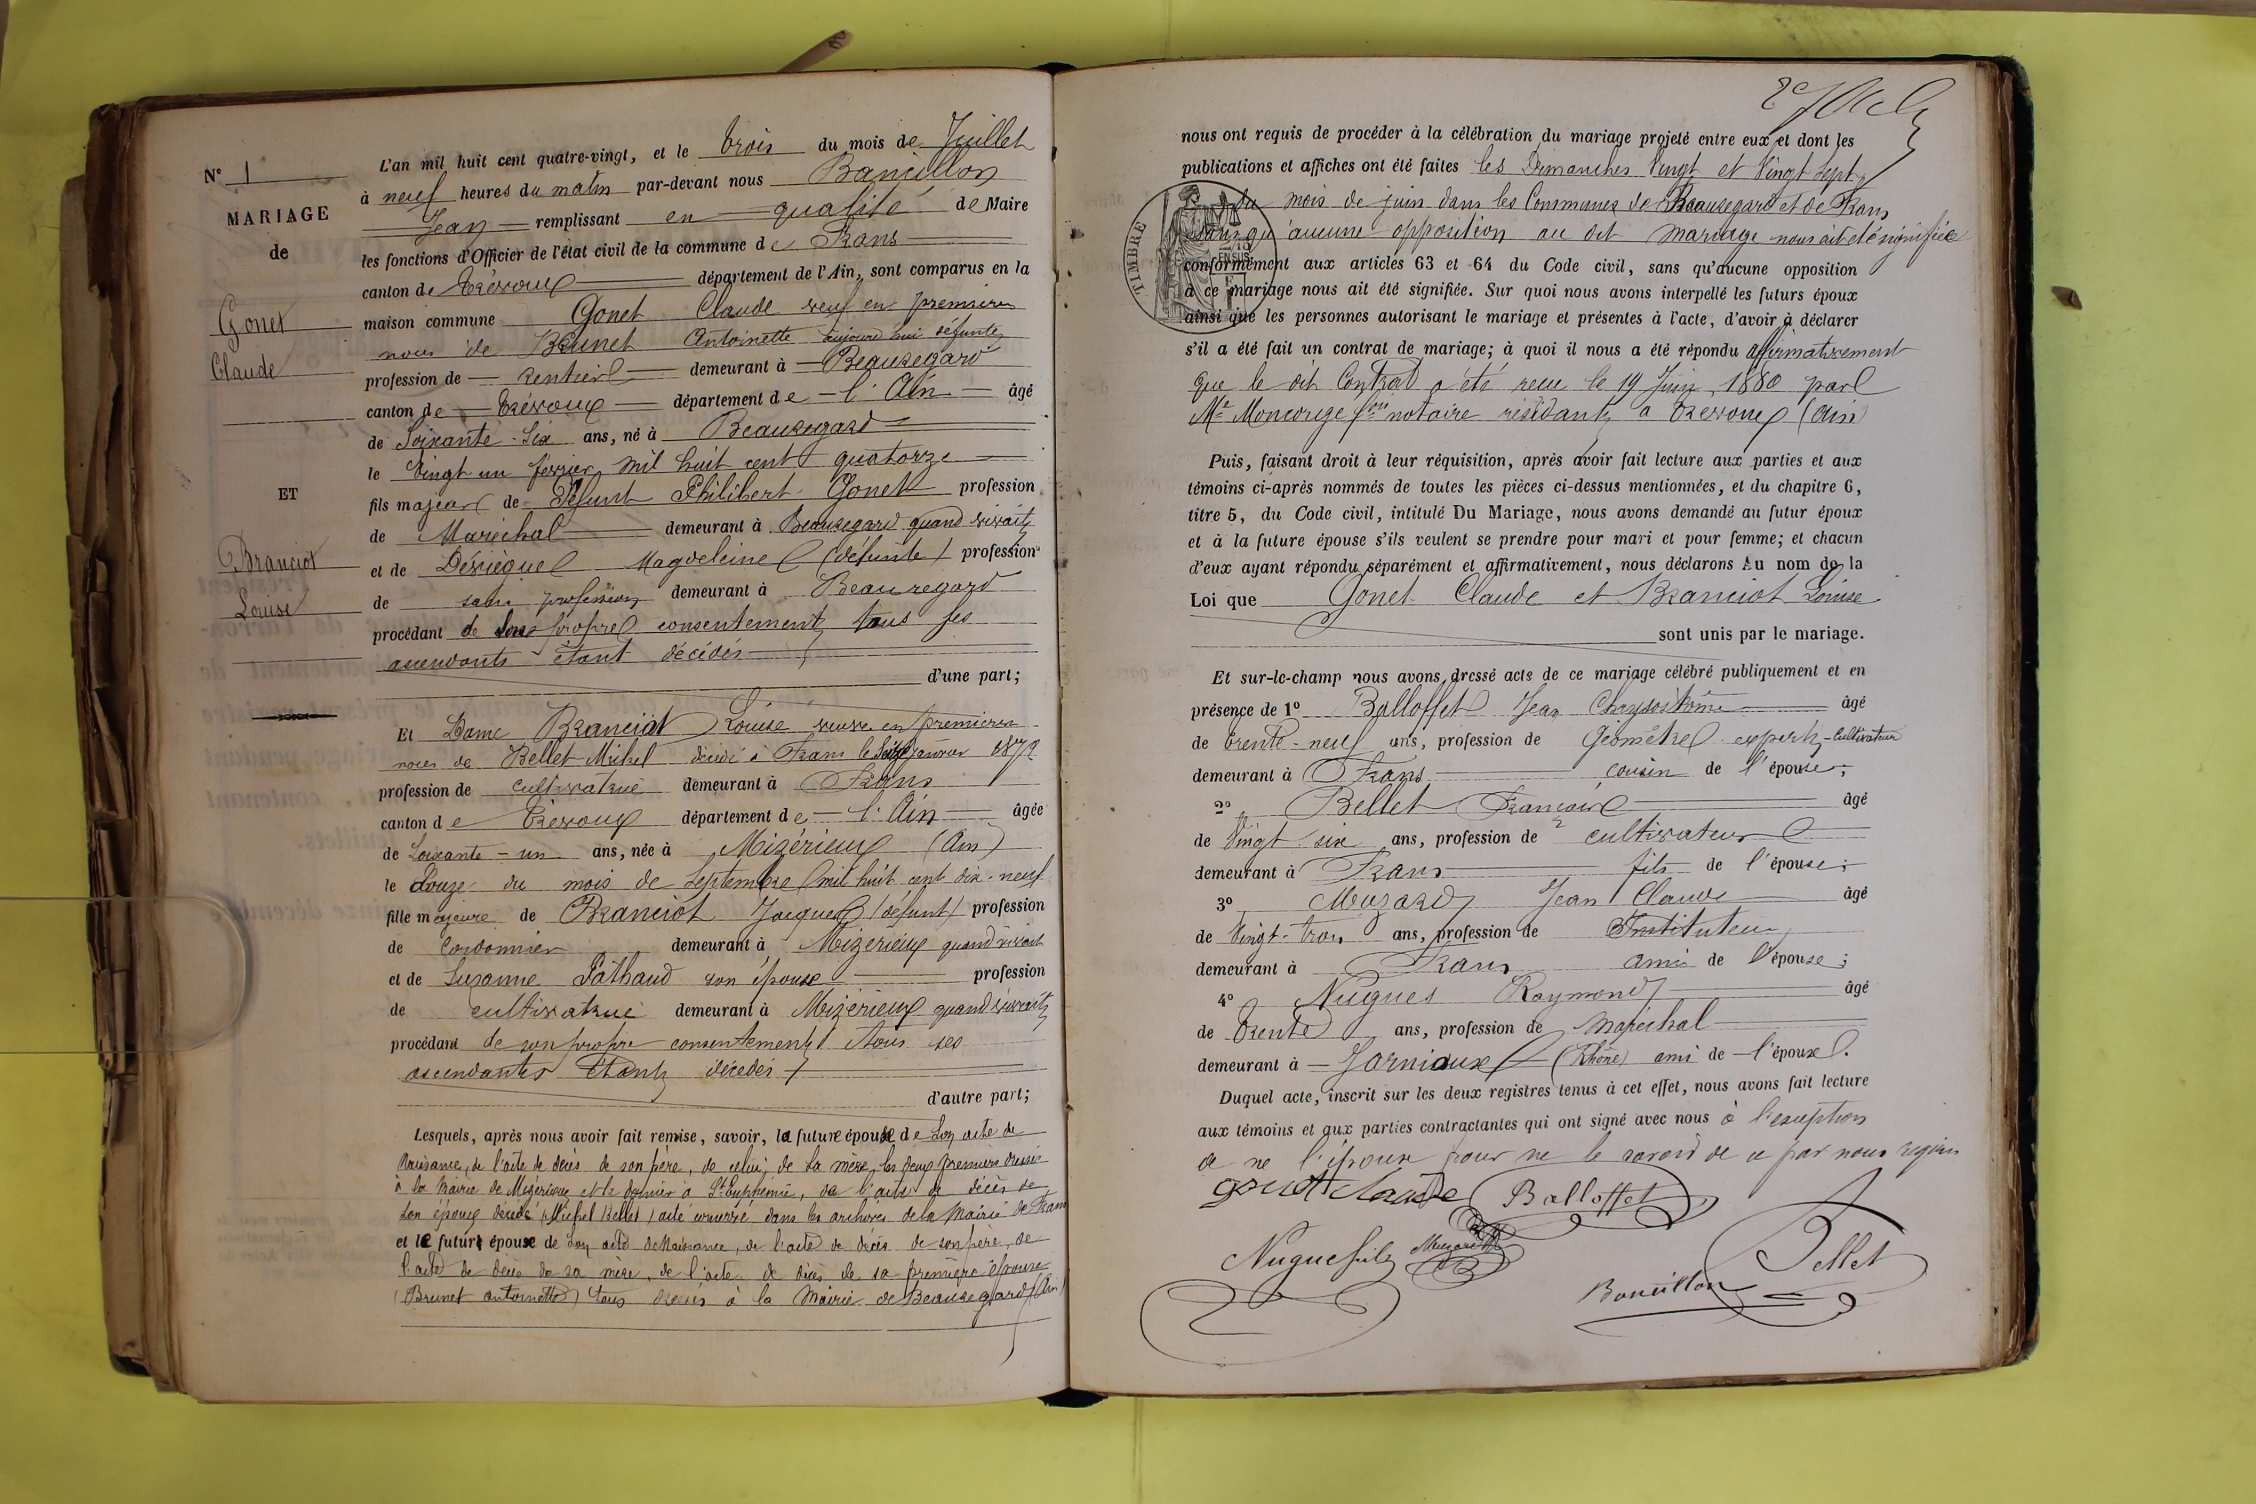 N° 1
MARIAGE
de
Gonet
Claude
ET
Branciot
Louise
L'an mil huit cent quatre-vingt, et le trois du mois de Juillet
à neuf heures du matin par-devant nous
Jean remplissant en qualité de Maire
les fonctions d'Officier de l'état civil de la commune de Frans
canton de Trévoux département de l'Ain, sont comparus en la
maison commune Gonet Claude veuf en premières
noces de Brunet Antoinette aujourd'hui défunte
profession de rentier demeurant à Beauregard
canton de Trévoux département de l'Ain âgé
de Soixante-Six ans, né à Beauregard
le vingt un février mil huit cent quatorze
fils majeur de Défunt Philibert Gonet profession
de Maréchal demeurant à Beauregard quand vivait
et de Magdeleine (défunte) profession
de sans profession demeurant à Beauregard
procédant de son propre consentement tous ses
ascendants étant décédés
d'une part;
Et Dame Branciot Louise veuve en premières
noces de Bellet Michel décédé à Frans le janvier 1872
profession de cultivatrice demeurant à Frans
canton de Trévoux département de l'Ain âgée
de Soixante-un ans, née à Mizérieux (Ain)
le Douze du mois de Septembre mil huit cent dix-neuf
fille majeure de Branciot Jacques (défunt) profession
de cordonnier demeurant à Mizérieux quand vivait
et de Suzanne Pathaud son épouse profession
de cultivatrice demeurant à Mizérieux quand vivait
procédant de son propre consentement tous ses
ascendants étant décédés
d'autre part;
Lesquels, après nous avoir fait remise, savoir, la future épouse de Son acte de
Naissance, de l'acte de décès de son père, de celui de sa mère, les deux premiers dressés
à la Mairie de Mizérieux et le dernier à St Euphémie, de l'acte de décès de
son époux décédé (Michel Bellet) acte conservé dans les archives de la Mairie de Frans
et le futur époux de Son acte de Naissance, de l'acte de décès de son père, de
l'acte de décès de sa mère, de l'acte de décès de sa première épouse
(Brunet antoinette) tous dressés à la Mairie de Beauregard (Ain)
nous ont requis de procéder à la célébration du mariage projeté entre eux et dont les
publications et affiches ont été faites les Dimanches Vingt et Vingt Sept
du mois de juin dans les Communes de Beauregard et de Frans
sans qu'aucune opposition au dit mariage nous ait été signifiée
TIMBRE
conformément aux articles 63 et 64 du Code civil, sans qu'aucune opposition
à ce mariage nous ait été signifiée. Sur quoi nous avons interpellé les futurs époux
ainsi que les personnes autorisant le mariage et présentes à l'acte, d'avoir à déclarer
s'il a été fait un contrat de mariage; à quoi il nous a été répondu affirmativement
que le dit Contrat a été reçu le 19 Juin 1880 par
Me notaire résidant à Trévoux (Ain)
Puis, faisant droit à leur réquisition, après avoir fait lecture aux parties et aux
témoins ci-après nommés de toutes les pièces ci-dessus mentionnées, et du chapitre 6,
titre 5, du Code civil, intitulé Du Mariage, nous avons demandé au futur époux
et à la future épouse s'ils veulent se prendre pour mari et pour femme; et chacun
d'eux ayant répondu séparément et affirmativement, nous déclarons Au nom de la
Loi que Gonet Claude et Branciot Louise
sont unis par le mariage.
Et sur-le-champ nous avons dressé acte de ce mariage célébré publiquement et en
présence de 1° Balloffet Jean Chrysostôme âgé
de trente-neuf ans, profession de Géomètre expert-cultivateur
demeurant à Frans cousin de l'épouse;
2° Bellet François âgé
de Vingt six ans, profession de cultivateur
demeurant à Frans fils de l'épouse;
3° Muzard Jean Claude âgé
de Vingt-trois ans, profession de Instituteur
demeurant à Frans ami de l'épouse;
4° Nugues Raymond âgé
de Trente ans, profession de Maréchal
demeurant à Jarnioux (Rhône) ami de l'époux.
Duquel acte, inscrit sur les deux registres tenus à cet effet, nous avons fait lecture
aux témoins et aux parties contractantes qui ont signé avec nous à l'exception
de l'épouse pour ne le savoir de ce par nous requis
gonet claude Balloffet
Nugues fils Muzard Bellet